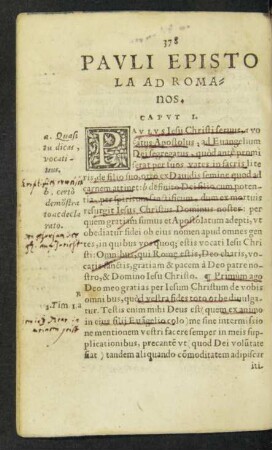 378
PAVLI EPISTO
LA AD ROMA-
nos.
CAPVT I.
a. Quasi
tu dicas,
vocati-
b. certò
demõstra
to ac decla
rato.
1. Tim 1. a
PAVLVS Iesu Christi seruus, vo
catus Apostolus, ad Euangelium
Dei segregatus, quod antè promi
serat per suos vates in sacris lite
ris, de filio suo, orto ex Dauidis semine quod ad
carnem attinet: b definito Dei filio cum poten
tia, per spiritum sanctificum, dum ex mortuis
resurgit Iesus Christus Dominus noster: per
quem gratiam sumus et Apostolatum adepti, vt
obediatur fidei ob eius nomen apud omnes gen
tes, in quibus vos quoq; estis vocati Iesu Chri
sti: Omnibus, qui Romę estis, Deo charis,
vocatis sanctis, gratiam & pacem à Deo patre no
stro, & Domino Iesu Christo. Primùm ago
Deo meo gratias per Iesum Christum de vobis
omnibus, quòd vestra fides toto orbe diuulga
tur. Testis enim mihi Deus est (quem ex animo
in eius filij Euãgelio colo) me sine intermissio
ne mentionem vestri facere semper in meis sup
plicationibus, precantẽ vt (quod Dei volũtate
fiat) tandem aliquando cõmoditatem adipiscar
iti.